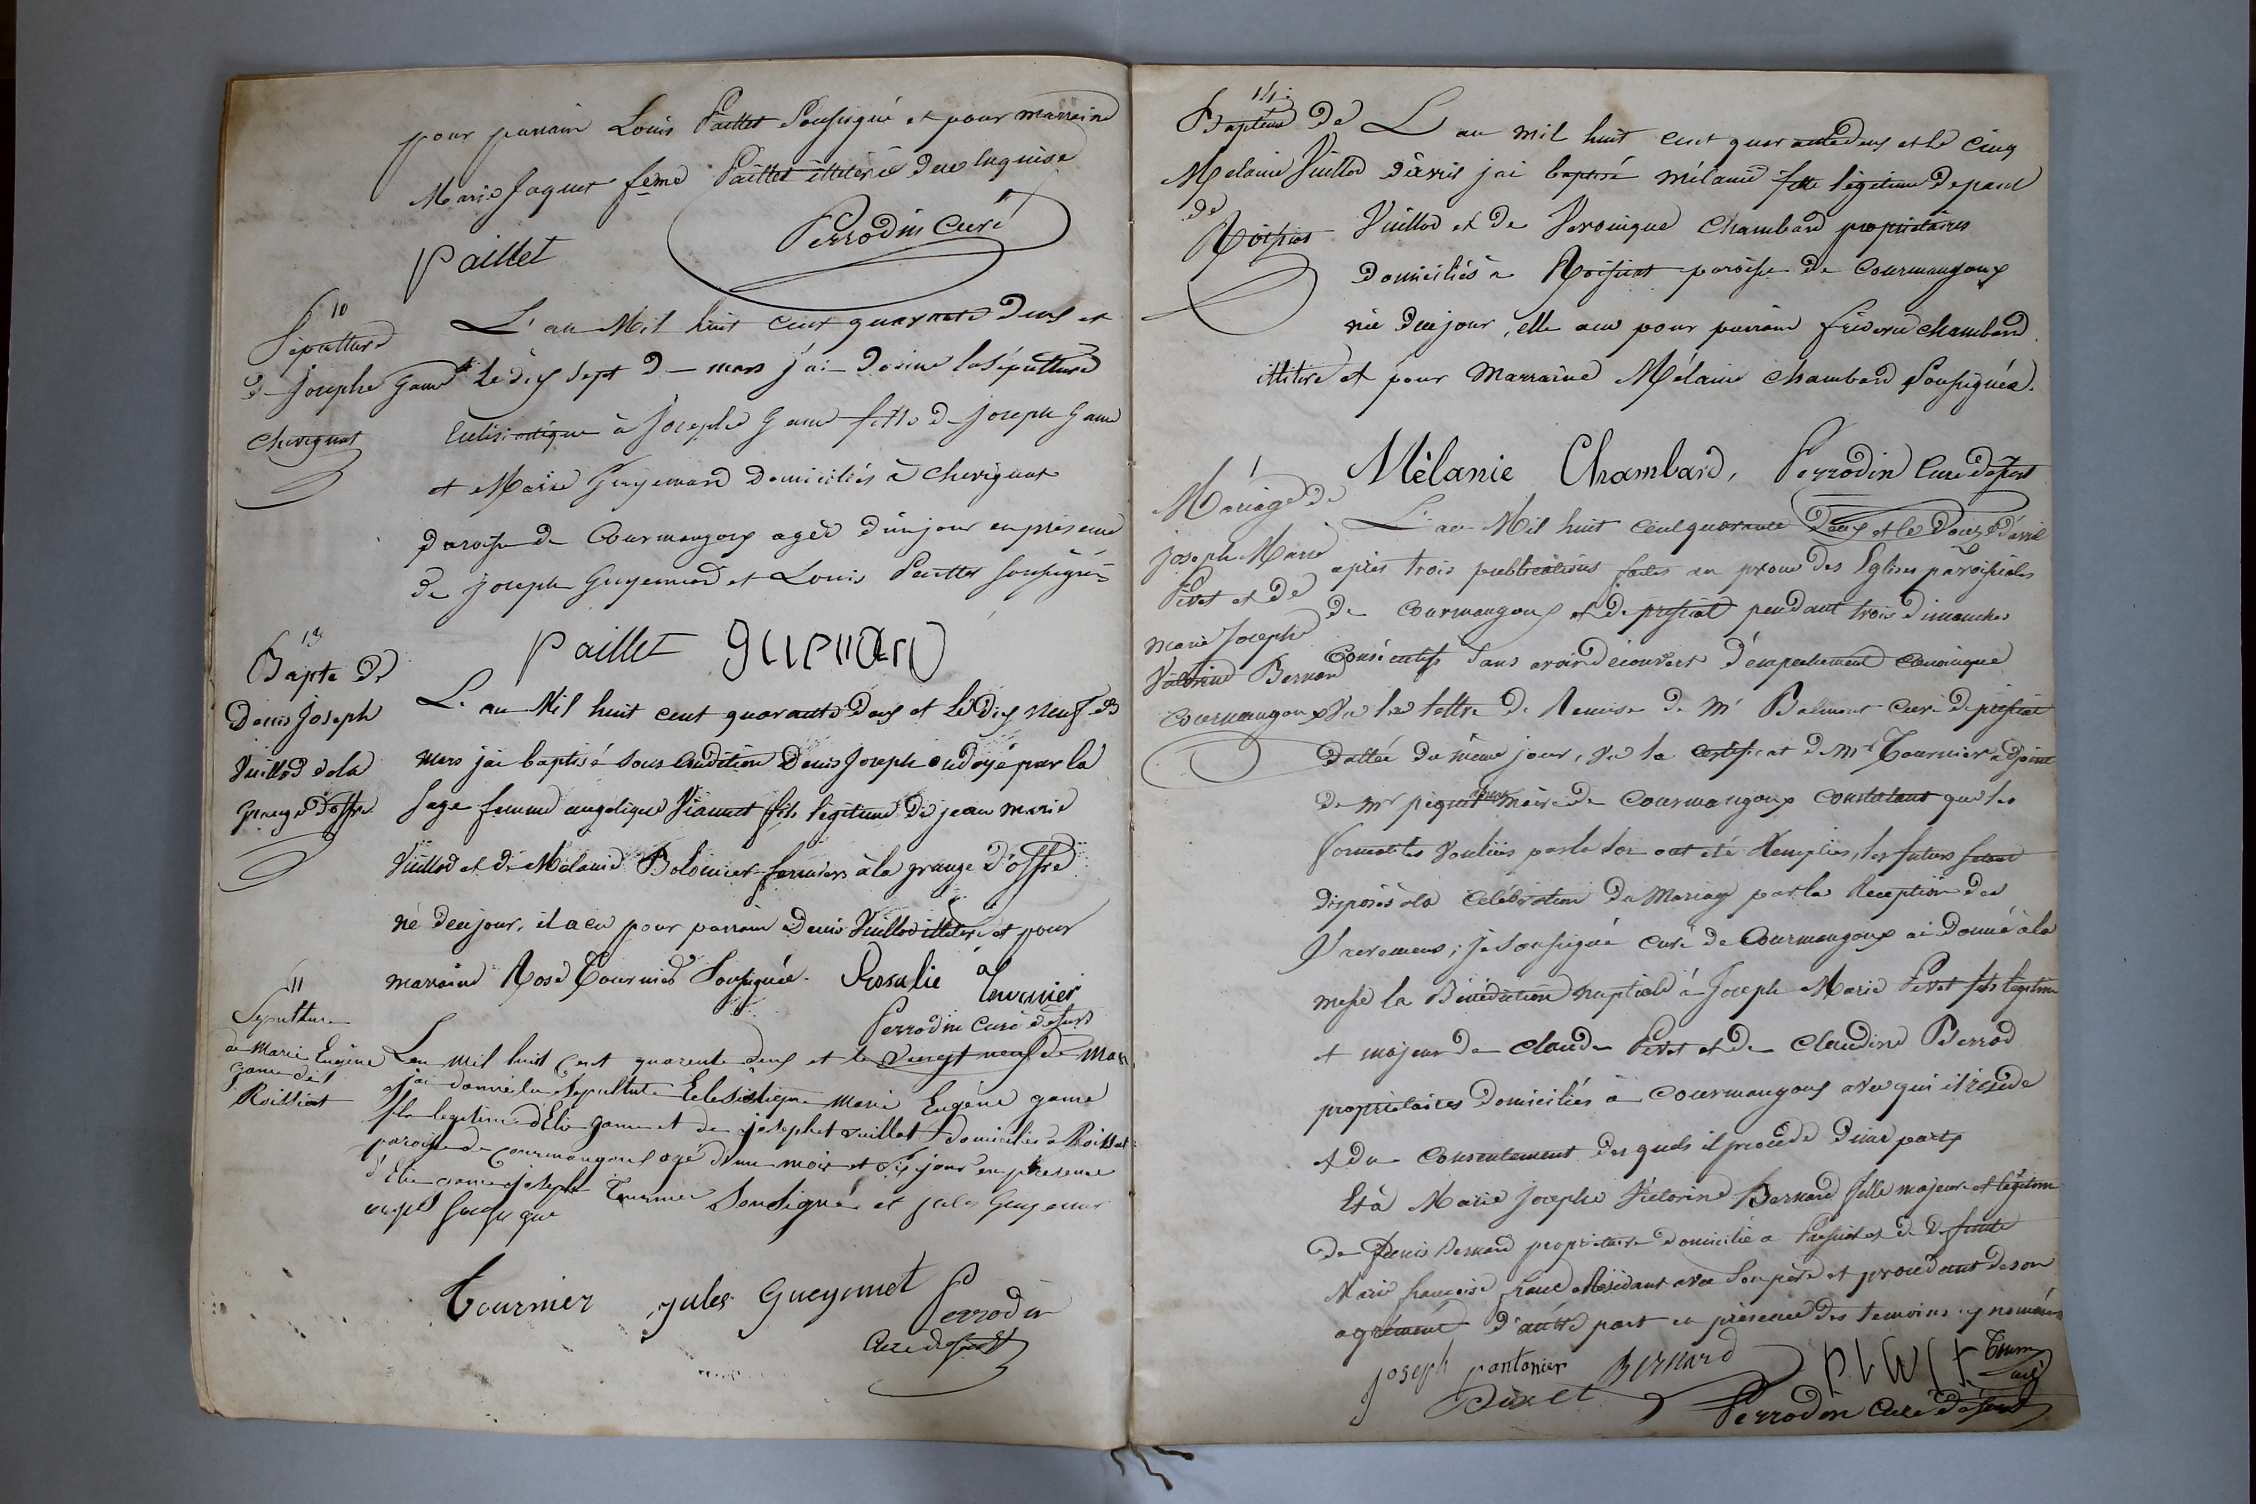 pour parrain Louis Paillet Soussigné et pour marraine
Marie Jaquet feme Paillet illitérée de ce enquise
Paillet Perrodin Curé
10
Sépulture
de Josephe Game
Chevignat
L'an Mil huit cent quarante deux et
le dix sept de mars j'ai donné la sépulture
Eclésiastique à Josephe Game fille de joseph Game
et Marie Guyenard Domiciliés à Chevignat
paroisse de Courmangoux agée d'un jour en présence
de joseph Guyennard et Louis Paillet soussignés
paillet
13
Bapte De
Denis Joseph
Vuillod de la
grange D'offre
L'an Mil huit cent quarante Deux et le Dix neuf de
Mars jai baptisé sous Condition Denis Joseph ondoyé par la
sage femme angélique Viannet fils légitime de jean marie
Vuillod et de Mélanie Bolomier fermiers à la grange D'offre
né de ce jour, il a eu pour parrain Denis Vuillod illitéré et pour
marraine Rose Tournier Soussignée. Rosalie Tournier
Perrodin Curé desert
11
Sepulture
de Marie Eugène
game de
Roissiat
L'an mil huit cent quarente deux et le vingt neuf de Mars
j'ai donné la Sépulture Eclesiastique marie Eugène game
fls legitime d'Elie game et de josephet vuillot domiciliés a Roissiat
paroisse de Courmangoux agé d'un mois et dix jour en presence
d'Elie game joseph Tournier Soussignés et jules Guyennet
Tournier jules Gueyennet Perrodin
Curé desert
14
Baptême De
Mélanie Vuillod
de
Roissiat
L'an mil huit cent quarante deux et le cinq
d'avril jai baptisé mélanie fille légitime de paul
Vuillod et de Veronique Chambard propriétaires
domiciliés à Roissiat paroisse de Courmangoux
née de ce jour, elle a eu pour parrain fréderic chambard
illitéré et pour Marraine Mélanie chambard Soussignée.
Mélanie Chambard, Perrodin Curé desert
1
Mariage de
joseph Marie
Pivet et de
marie Josephe
Victorine Bernard
Courmangoux
L'an Mil huit cent quarante Deux et le Douze d'avril
après trois publications faites au prone des Eglises paroissiales
de Courmangoux et de pressiat pendant trois dimanches
consécutifs sans avoir découvert d'empechement Canonique
Vu la lettre de Remise de Mr Balmont curé de pressiat
dattée du même jour, vu le certificat de Mr Tournier adjoint
de Mr piquet maire de Courmangoux constatant que les
formalités voulues par la loi ont été Remplies, les futurs
disposés à la célébration du Mariage par la Reception des
Sacremens; je soussigné curé de Courmangoux ai donné à la
messe la Bénédiction nuptiale à Joseph Marie Pivet fils légitime
et majeur de Claude Pivet et de Claudine Perrod
propriétaires domiciliés à Courmangoux avec qui il réside
et du Consentement des quels il procède d'une part
Et à Marie josephe Victorine Bernard fille majeure et légitime
de Denis Bernard propriétaire domicilié a Pressiat et de defunte
Marie françoise résidant avec son père et procédant de son
agrément d'autre part en présence des temoins cy nommés
joseph pantonier Bernard pivet
Pivet Perrodin Curé desert